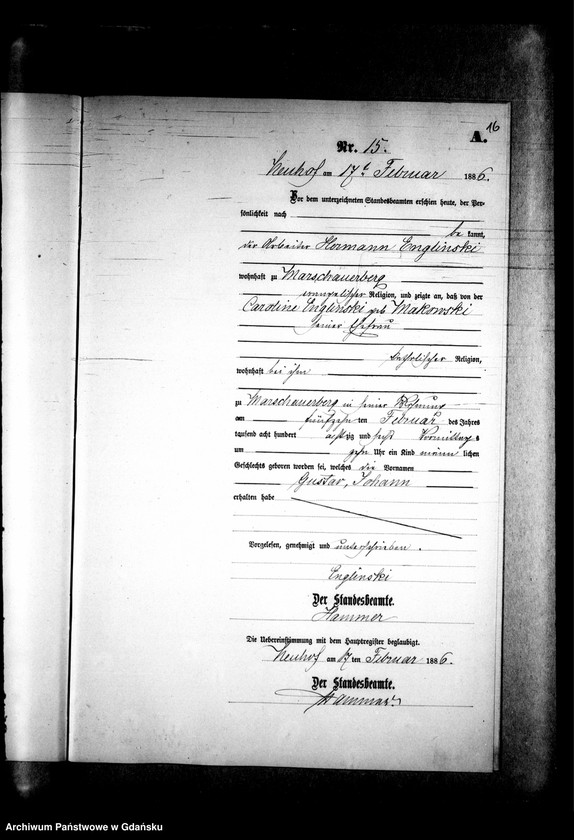 16
A.
Nr. 15.
Neuhof am 17t Februar 1886.
Vor dem unterzeichneten Standesbeamten erschien heute, der Per-
sönlichkeit nach
be kannt,
der Arbeiter Hermann Englinski
wohnhaft zu Marschauerberg
evangelischer Religion, und zeigte an, daß von der
Caroline Englinski geb Makowski
seiner Ehefrau
Religion,
wohnhaft bei ihm
zu Marschauerberg in seiner Wohnung
am fünfzehn ten Februar des Jahres
tausend acht hundert achtzig und sechs Vormittag s
um zehn Uhr ein Kind männ lichen
Geschlechts geboren worden sei, welches die Vornamen
Gustav, Johann
erhalten habe
Vorgelesen, genehmigt und unterschrieben.
Englinski
Der Standesbeamte.
Hammer
Die Uebereinstimmung mit dem Hauptregister beglaubigt.
Neuhof am 17 ten Februar 1886.
Der Standesbeamte.
Hammer.
Archiwum Państwowe w Gdańsku